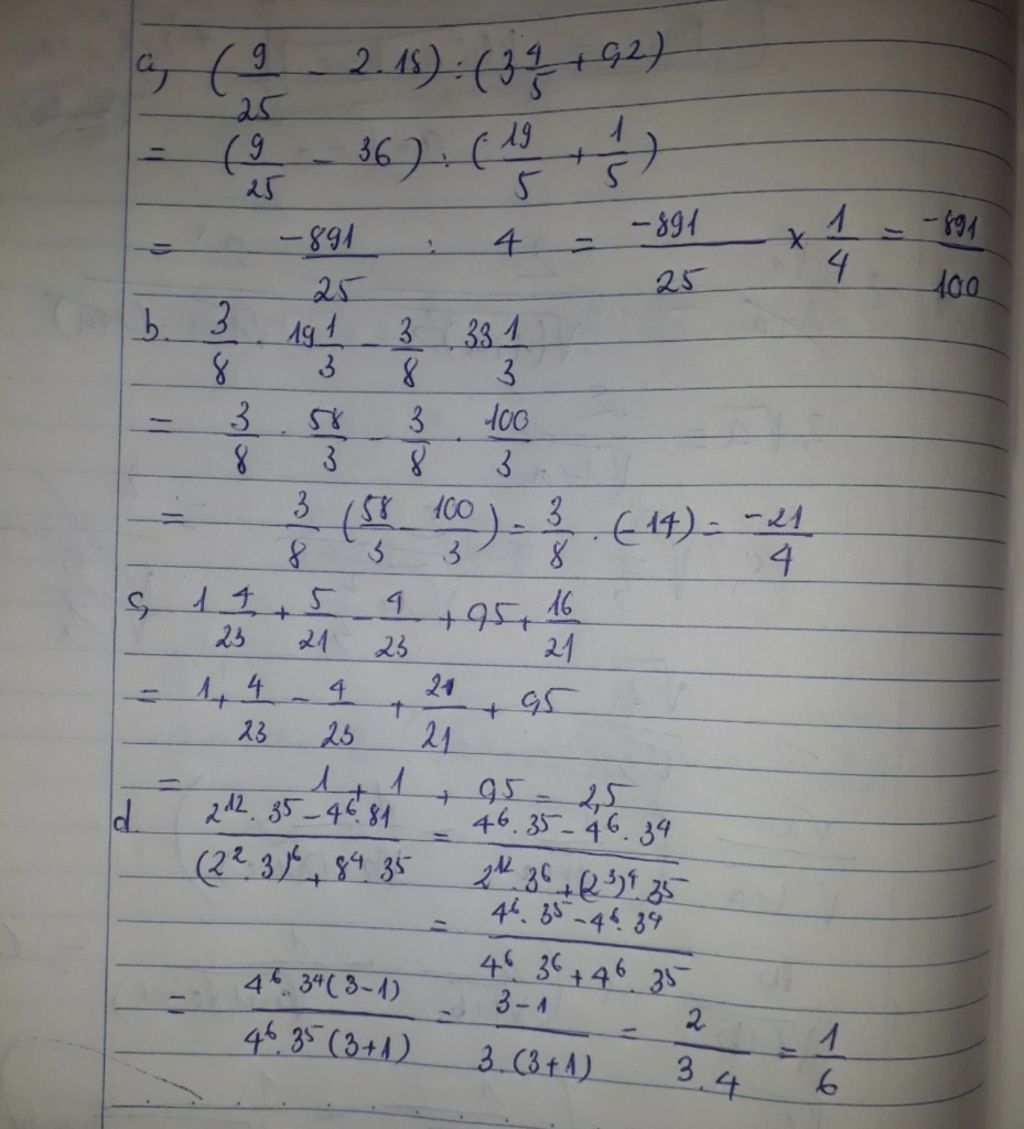 a, (9/25 - 2.18) : (3 4/5 + 0,2)
= (9/25 - 36) : (19/5 + 1/5)
= -891/25 : 4 = -891/25 × 1/4 = -891/100
b. 3/8 . 19 1/3 - 3/8 . 33 1/3
= 3/8 . 58/3 - 3/8 . 100/3
= 3/8 (58/3 - 100/3) = 3/8 . (-14) = -21/4
c, 1 4/23 + 5/21 - 4/23 + 0,5 + 16/21
= 1 + 4/23 - 4/23 + 21/21 + 0,5
= 1 + 1 + 0,5 = 2,5
d. (2¹² . 3⁵ - 4⁶ . 81)/((2² . 3)⁶ + 8⁴ . 3⁵) = (4⁶ . 3⁵ - 4⁶ . 3⁴)/(2¹² . 3⁶ + (2³)⁴ . 3⁵)
= (4⁶ . 3⁵ - 4⁶ . 3⁴)/(4⁶ . 3⁶ + 4⁶ . 3⁵)
= (4⁶ . 3⁴ (3 - 1))/(4⁶ . 3⁵ (3 + 1)) = (3 - 1)/(3 . (3 + 1)) = 2/(3 . 4) = 1/6